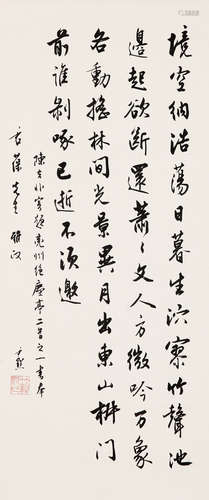 境空納浩蕩日暮生泬寥竹聲池
邊起欲斷還蕭〻文人方微吟萬象
各動搖林間光景異月出東山椒門
前誰剝啄已逝不須邀
陳去非寄題兗州絕塵亭二首之一書奉
先生雅政
尹默